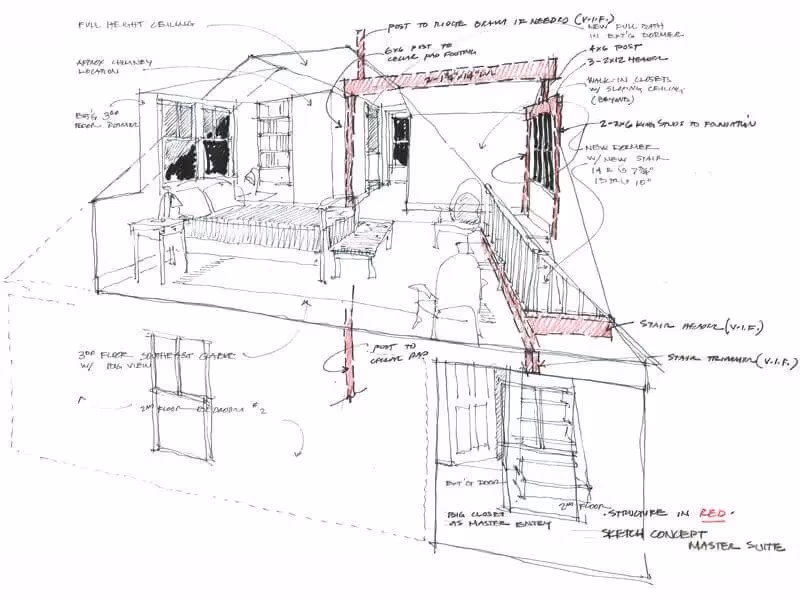 FULL HEIGHT CEILING
POST TO RIDGE BEAM IF NEEDED (V.I.F.)
NEW FULL BATH
IN EXT'G DORMER
6x6 POST TO
CELLAR PAD FOOTING
4x6 POST
3-2x12 HEADER
APPROX CHIMNEY
LOCATION
2-1¾"/14" LVL
WALK-IN CLOSET
W/ SLOPING CEILING
(BEYOND)
EXT'G 3RD
FLOOR DORMER
2-2x6 KING STUDS TO FOUNDATION
NEW DORMER
W/ NEW STAIR
14 R IS 7¾"
13 TR IS 10"
STAIR HEADER (V.I.F.)
3RD FLOOR SOUTHEAST GABLE
W/ BIG VIEW
POST TO
CELLAR PAD
STAIR TRIMMER (V.I.F.)
2ND FLOOR #2
EXT'G DOOR
2ND FLOOR
BIG CLOSET
AS MASTER ENTRY
STRUCTURE IN RED.
SKETCH CONCEPT
MASTER SUITE